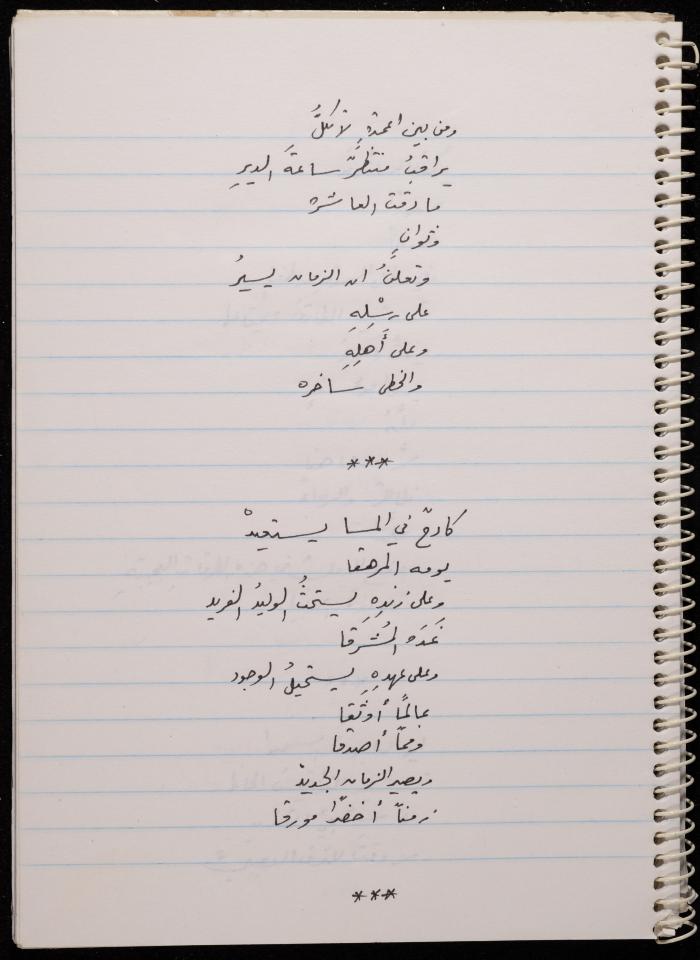 ومن بين اعمدةٍ لا تكلُّ
يراقبُ منتظرٌ ساعةَ الديرِ
ما دقت العاشره
وثوانٍ
وتعلنُ ان الزمان يسيرُ
على رِسْلِهِ
وعلى أَهلِهِ
والخطى ساخره
***
كادحٌ في المسا يستعيدْ
يومه المرهقا
وعلى زندِهِ يستحثُّ الوليدُ الفريد
غَدَه المُشرقا
وعلى عهدِهِ يستحيلُ الوجود
عالماً أوثقا
ومماً أصدقا
ويصير الزمان الجديد
زمناً أخضراً مورقا
***